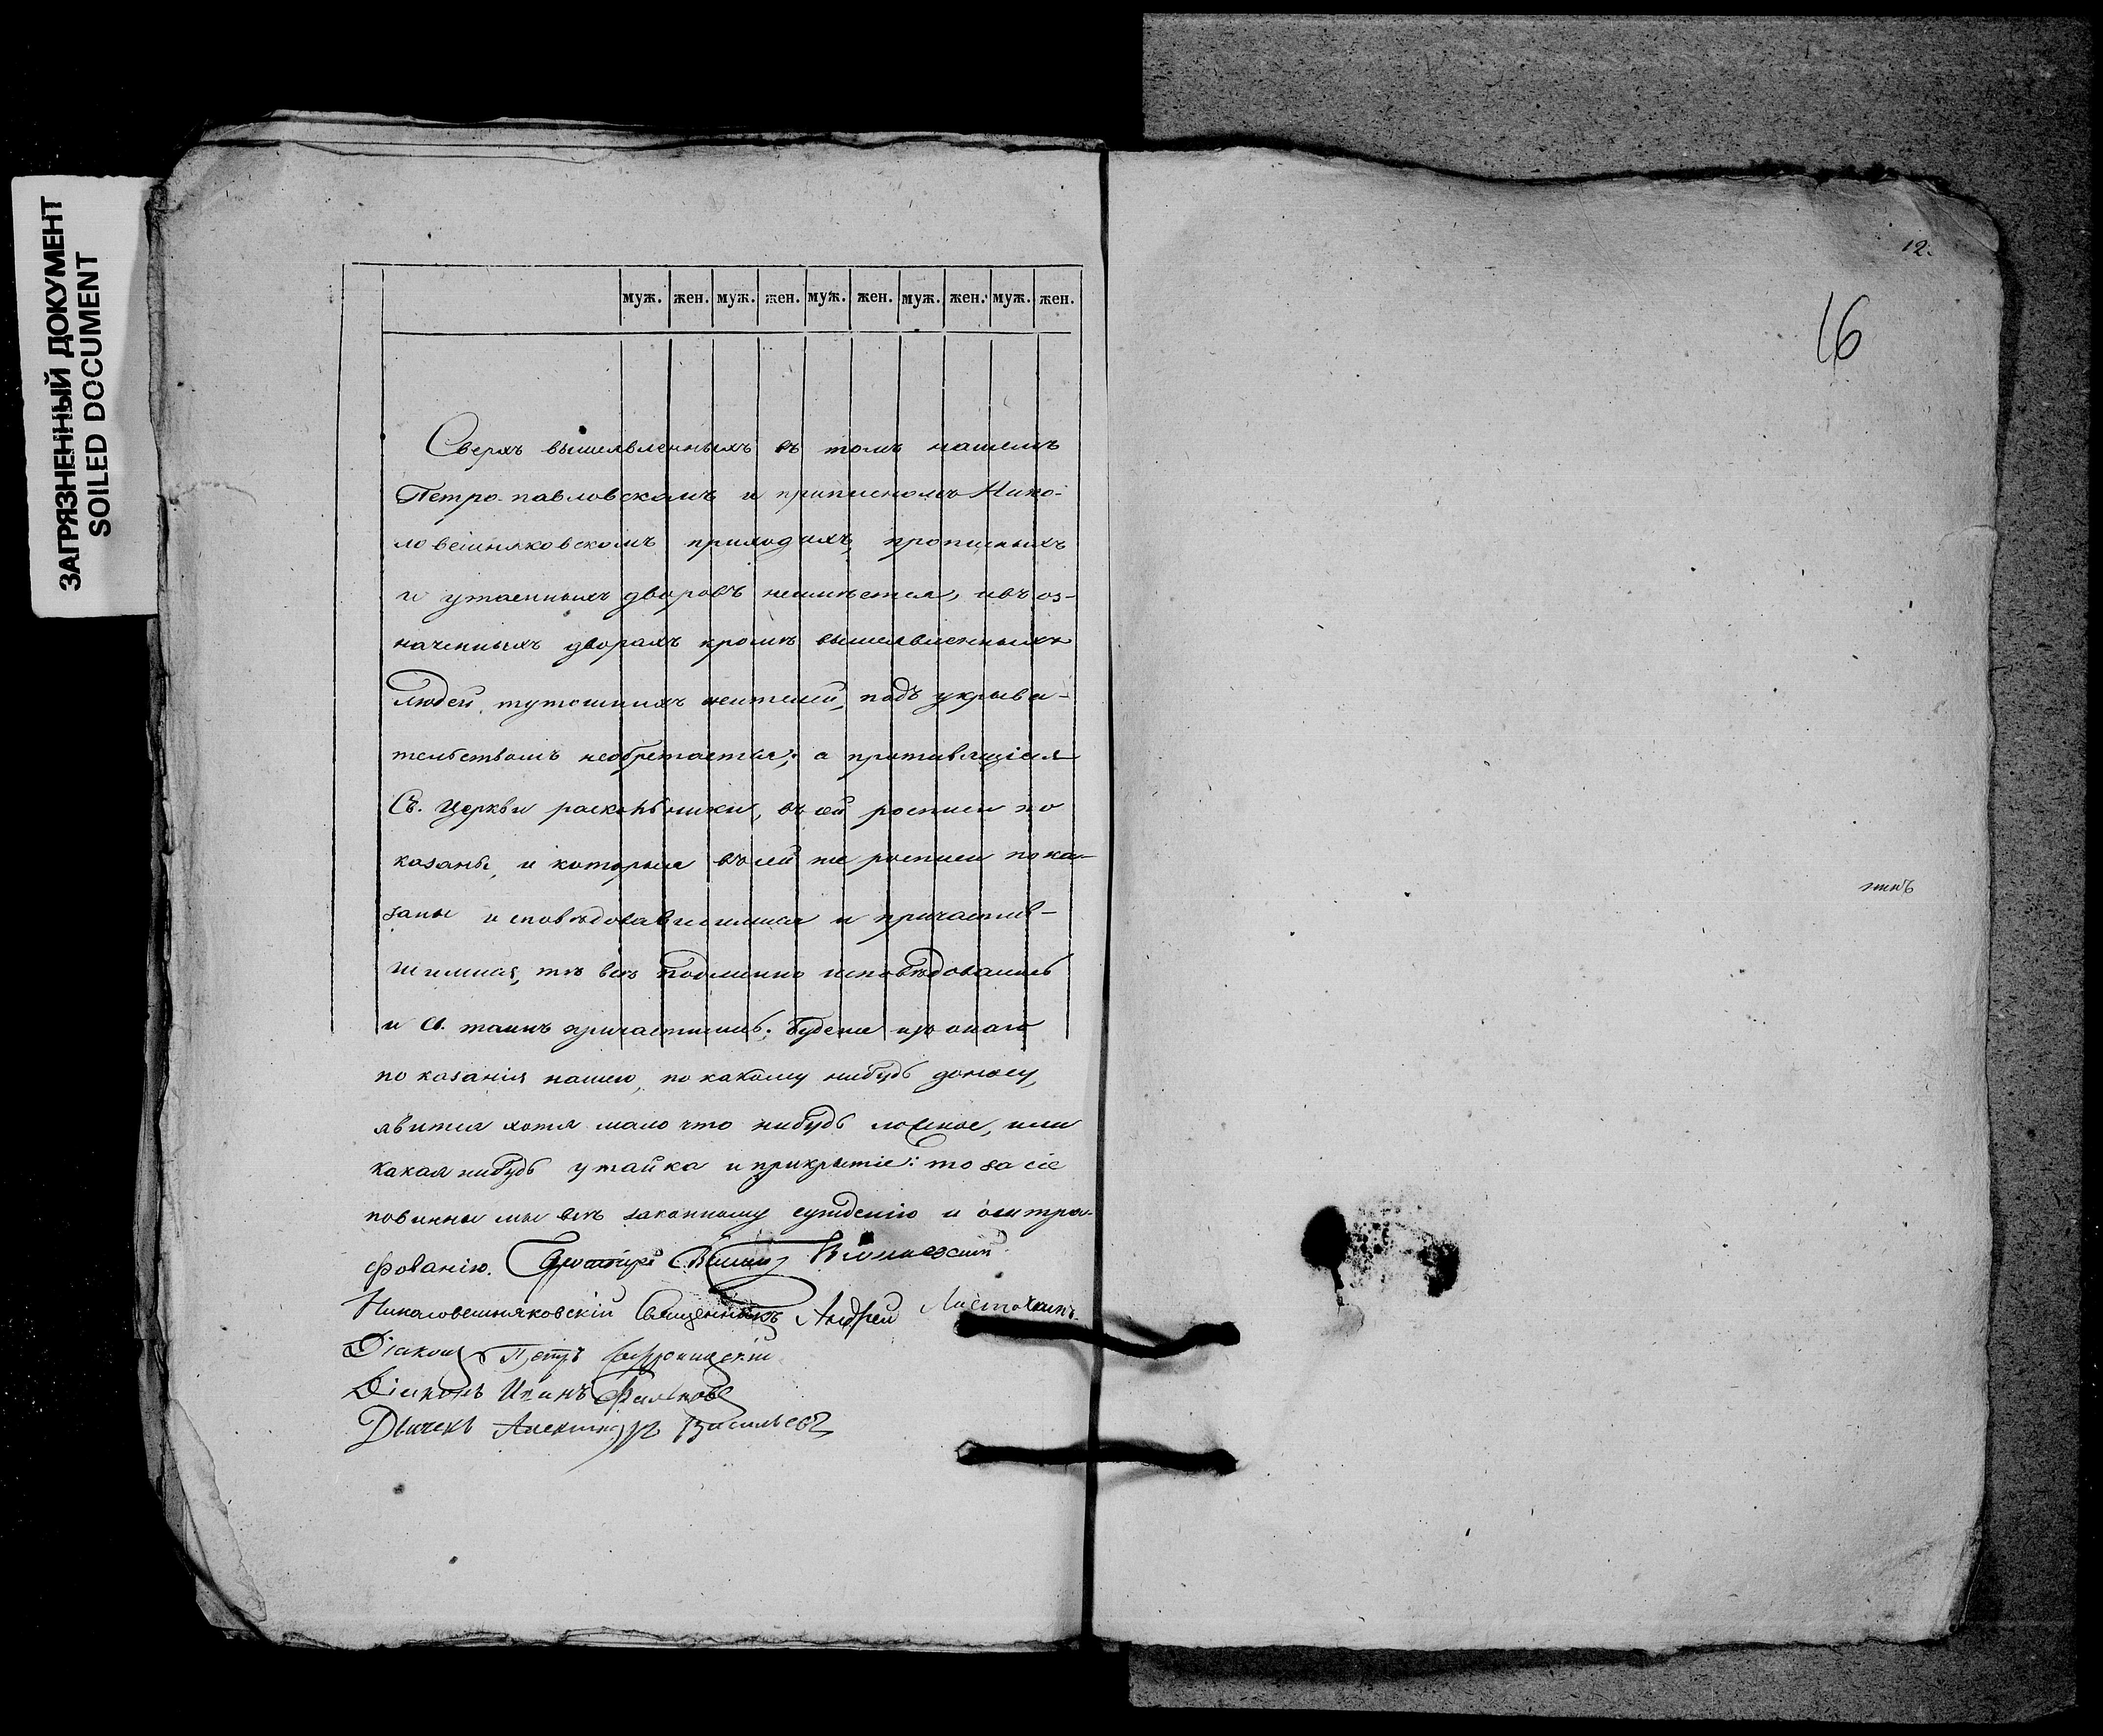 ЗАГРЯЗНЕННЫЙ ДОКУМЕНТ
SOILED DOCUMENT
муж. жен. муж. жен. муж. жен. муж. жен. муж. жен.
Сверхъ вышеявленныхъ въ томъ нашемъ
Петро-павловскомъ и приписномъ Нико-
ловешняковскомъ приходахъ, прописныхъ
и утаенныхъ дворовъ неимѣется, ивъ оз-
наченныхъ дворахъ кромѣ вышеявленныхъ
людей, тутошнихъ жителей, подъ укрыва-
тельствомъ необретается; а противящіеся
Св. Церкви раскольники, въ сей росписи по
казаны, и которыя въ сей же росписи пока-
заны исповѣдовавшимися и причастив-
шимися, тѣ всѣ подлинно исповѣдовались
и Св. таинъ причастились; будеже изъ онаго
показанія нашего, по какому нибудь доносу,
явится хотя мало что нибудь ложное, или
какая нибудь утайка и прикрытіе: то за сіе
повинны мы всѣ законному сужденію и оштра-
фованію. Протоіерей
Николовешняковскій Священникъ Андрей
Діаконъ Петръ
Діаконъ Иванъ
Дьячекъ Александръ Васильевъ
12.
16